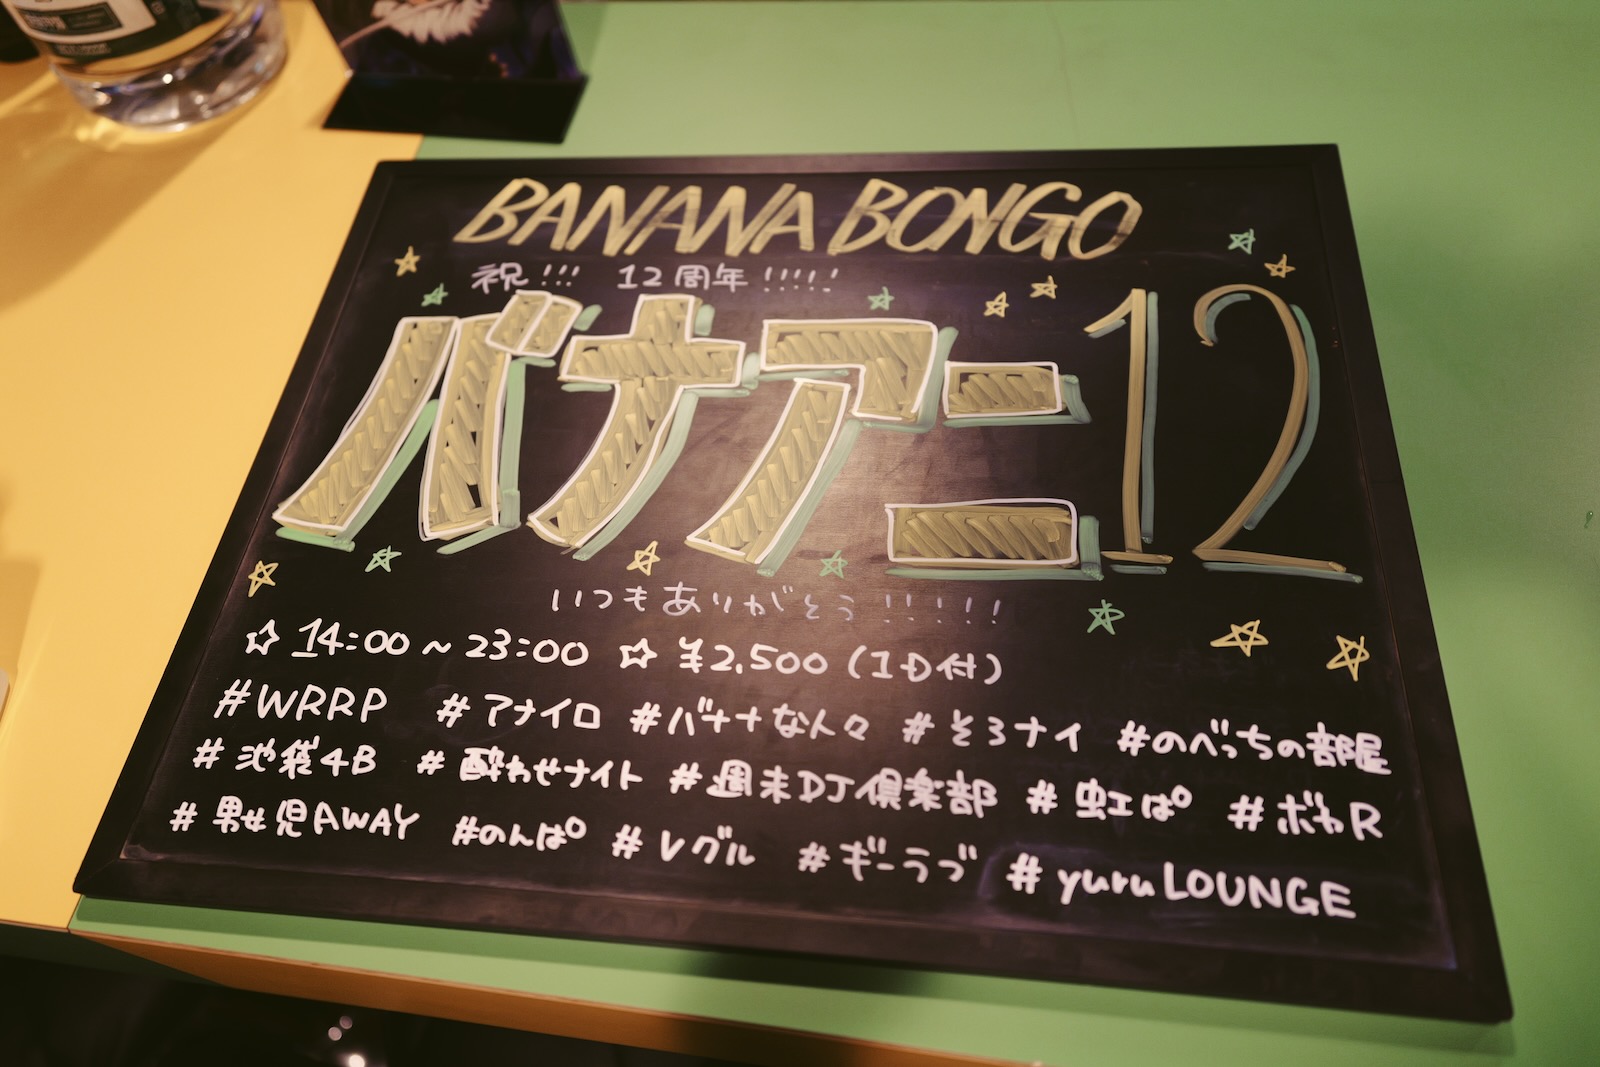 BANANA BONGO
祝!!! 12周年!!!!!
バナアニ12
いつもありがとう!!!!!!
☆14:00~23:00 ☆¥2,500(1D付)
#WRRP #アナイロ #バナナな人々 #そろナイ #のべっちの部屋
#池袋4B #酔わせナイト #週末DJ倶楽部 #虹ぱ #ボカR
#男女児AWAY #のんぱ #Vグル #ギーラブ #yuruLOUNGE